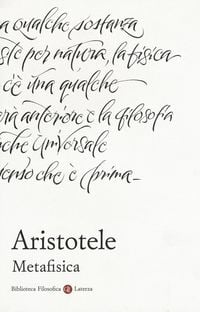 a qualche sostanza
ste per natura, la fisica
c'è una qualche
rà anteriore e la filosofia
che universale
ento che è prima_
Aristotele
Metafisica
Biblioteca Filosofica Laterza